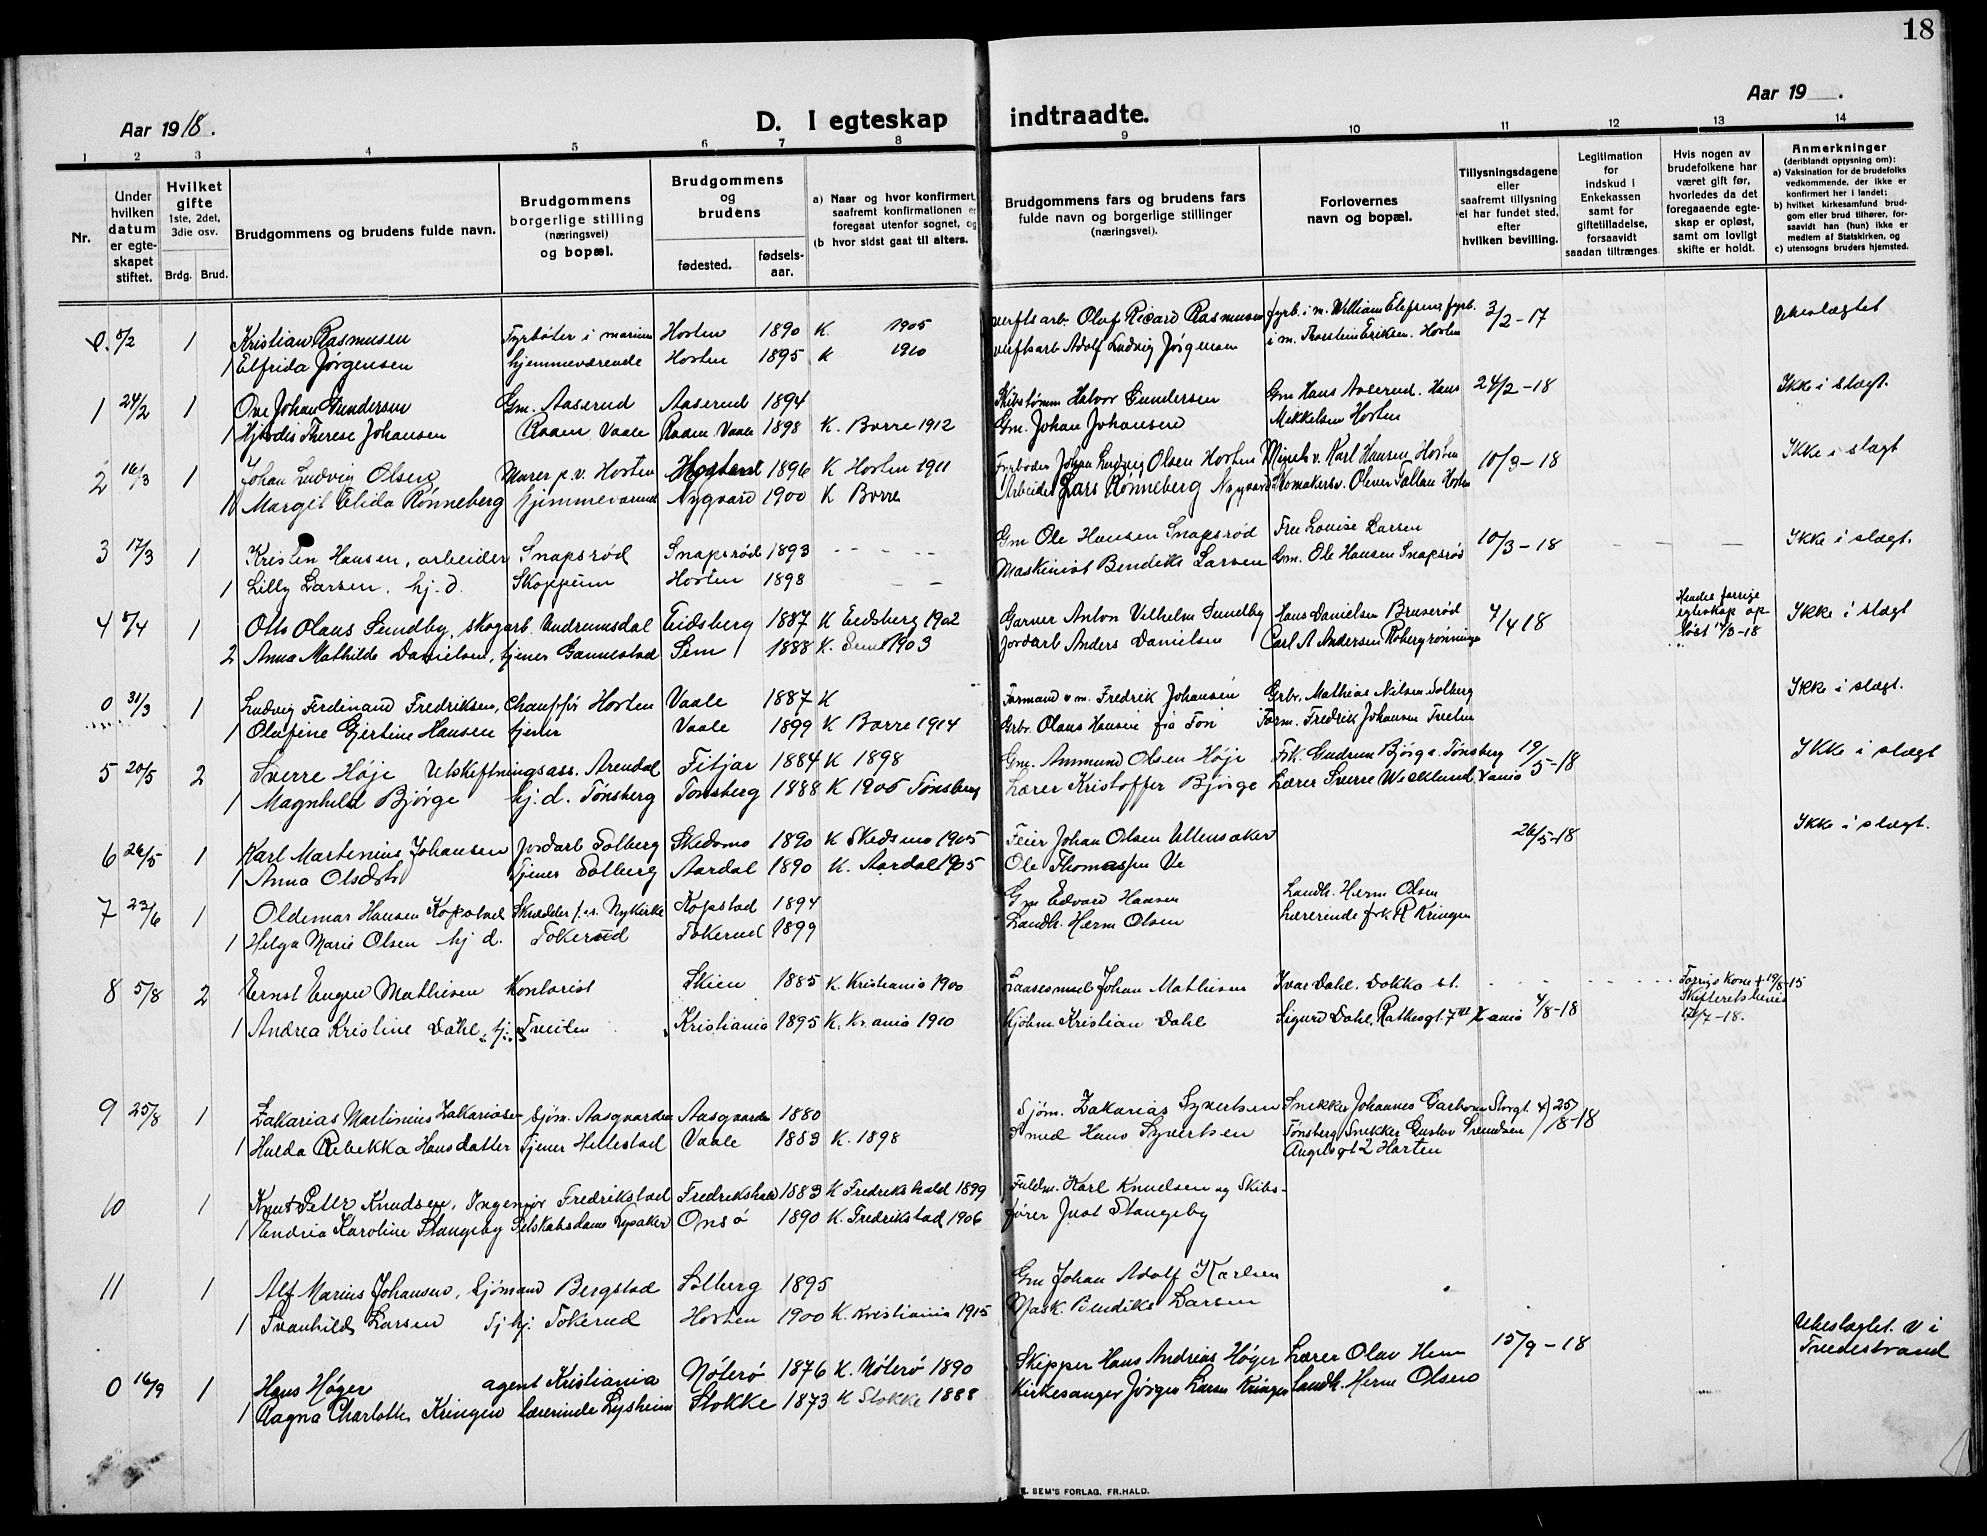 18
Aar 1918.
D. I egteskap indtraadte.
Aar 19 .
1 2 3 4 5 6 7 8 9 10 11 12 13 14
Nr.
Under hvilken datum er egteskapet stiftet.
Hvilket gifte 1ste, 2det, 3die osv.
Brdg. Brud.
Brudgommens og brudens fulde navn.
Brudgommens borgerlige stilling (næringsvei) og bopæl.
Brudgommens og brudens
fødested. fødselsaar.
a) Naar og hvor konfirmert, saafremt konfirmationen er foregaat utenfor sognet, og
(b hvor sidst gaat til alters.
Brudgommens fars og brudens fars fulde navn og borgerlige stillinger (næringsvei).
Forlovernes navn og bopæl.
Tillysningsdagene eller saafremt tillysning ei har fundet sted, efter hvilken bevilling.
Legitimation for indskud i Enkekassen samt for giftetilladelse, forsaavidt saadan tiltrænges
Hvis nogen av brudefolkene har været gift før, hvorledes da det foregaaende egteskap er opløst, samt om lovligt skifte er holdt.
Anmerkninger (deriblandt oplysning om):
a) Vaksination for de brudefolks vedkommende, der ikke er konfirmert her i landet;
b) hvilket kirkesamfund brudgom eller brud tilhører, forsaavidt han (hun) ikke er medlem af Statskirken, og
c) utensogns bruders hjemsted.
0. 5/2 1 Kristian Rasmusen Fyrbøter i marinen Horten 1890 K. 1905 verftsarb. Olaf Ricard Rasmusen fyrb. i m. William Elefsen, fyrb. 3/2-17 Ubeslægtet
1 Elfrida Jørgensen hjemmeværende Horten 1895 K 1910 verftsarb Adolf Ludvig Jørgensen i m. Thorstein Eriksen. Horten
1 24/2 1 Ove Johan Gundersen Gm. Aaserud Aaserud 1894 Skibstømm Halvor Gundersen Gm Hans Aaserud. Hans 24/2-18 Ikke i slægt.
1 Hjørdis Therese Johansen Raaen Vaale Raaen Vaale 1898 K. Borre 1912 Gm. Johan Johansen Mekkelsen Horten
2 16/3 1 Johan Ludvig Olsen Murer p.v. Horten Horten 1896 K Horten 1911 Fyrbøder Johan Ludvig Olsen Horten Karl Hansen Horten 10/3-18 Ikke i slægt
1 Margit Elida Rønneberg hjemmeværende Nygaard 1900 K Borre Arbeider Lars Rønneberg Nygaard Skomakersv. Oliver Tallan Horten
3 17/3 1 Kristen Hansen, arbeider Snapsrød Snapsrød 1893 Gm Ole Hansen Snapsrød Fru Louise Larsen 10/3-18 Ikke i slægt.
1 Lilly Larsen. hj. d. Skoppum Horten 1898 Maskinist Bendiks Larsen Gm. Ole Hansen Snapsrød
4 8/4 1 Otto Olaus Sundby, skogarb. Undrumsdal Eidsberg 1887 K Eidsberg 1902 Garver Anton Vilhelm Sundby Hans Danielsen Bruserød 7/4 18 Mandes forrige egteskap opløst 12/3-18 Ikke i slægt
2 Anna Mathilde Danielsen, tjener Gannestad Sem 1888 K. Sem 1903 Jordarb Anders Danielsen Carl A Andersen Robergrønningen
0 31/3 1 Ludvig Ferdinand Fredriksen, Chauffør Horten Vaale 1887 K Formand v m. Fredrik Johansen Grbr. Mathias Nilsen Solberg Ikke i slægt.
1 Olufine Gjertine Hansen tjener Vaale 1899 K Borre 1914 Grbr. Olaus Hansen fra Fon Form. Fredrik Johansen Tveiten
5 20/5 2 Sverre Høje Utskiftningsass. Arendal Fitjar 1884 K 1898 Gm. Ammund Olsen Høje Frk. Gudrun Bjørge. Tønsberg 19/5-18 Ikke i slægt
1 Magnhild Bjørge hj. d. Tønsberg Tønsberg 1888 K 1905 Tønsberg Lærer Kristoffer Bjørge Lærer Sverre Wicklund, Kr.ania
6 26/5 1 Karl Martenius Johansen Jordarb Solberg Skedsmo 1890 K Skedsmo 1905 Feier Johan Olsen Ullensaker 26/5-18 Ikke i slægt.
1 Anna Olsdtr Tjener Solberg Aardal 1890 K. Aardal 1905 Ole Thomassen Ve
7 23/6 1 Oldemar Hansen Kopstad Skrædder Nykirke Kopstad 1894 Gm Edvard Hansen Landh. Herm Olsen
1 Helga Marie Olsen hj d. Tokerud Tokerud 1899 Landh. Herm Olsen Lærerinde frk R Kringen
8 5/8 2 Ernst Eugen Mathisen Kontorist Skien 1885 K Kristiania 1900 Johan Mathisen Ivar Dahl. Dokka st. Forrige kone † 19/8-15 Skifteretsbevis 12/7-18.
1 Andrea Kristine Dahl, hj. Tveiten Kristiania 1895 K. Kr.ania 1910 Kjøbm. Kristian Dahl Sigurd Dahl, Rathesgt. 7 III Kr.ania 4/8-18
9 25/8 1 Zakarias Martinius Zakariasen Sjøm. Aasgaarden Aasgaarden 1880 Sjøm. Zakarias Syvertsen Snekker Johannes Garbom Storgt. 4) 25/8-18
1 Hulda Rebekka Hansdatter Tjener Hellestad Vaale 1883 K. 1898 Smed Hans Syvertsen Tønsberg Snekker Gustav Svendsen Augelsgt 2 Horten
10 1 Knut Peter Knudsen, Ingeniør Fredrikstad Fredrikshald 1883 K Fredrikshald 1899 Fuldm. Karl Knudsen og Skibs-
1 Andrea Karoline Stangeby Selskabsdame Lysaker Onsø 1890 K. Fredrikstad 1906 fører Just Stangeby
11 1 Alf Marius Johansen, Sjømand Bergstad Solberg 1895 Gm Johan Adolf Karlsen
1 Svanhild Larsen Tj hj. Tokerud Horten 1900 K. Kristiania 1915 Mask. Bendiks Larsen
0 16/9 1 Hans Høger agent Kristiania Nøterø 1876 K. Nøterø 1890 Skipper Hans Andreas Høger Lærer Olav Hem 15/9-18 Ubeslægtet. V i Tvedestrand
1 Ragna Charlotte Kringen Lærerinde Lysheim Stokke 1873 K Stokke 1888 Kirkesanger Jørgen Larsen Kringen Landh. Herm Olsen
SEM'S FORLAG. FR.HALD.